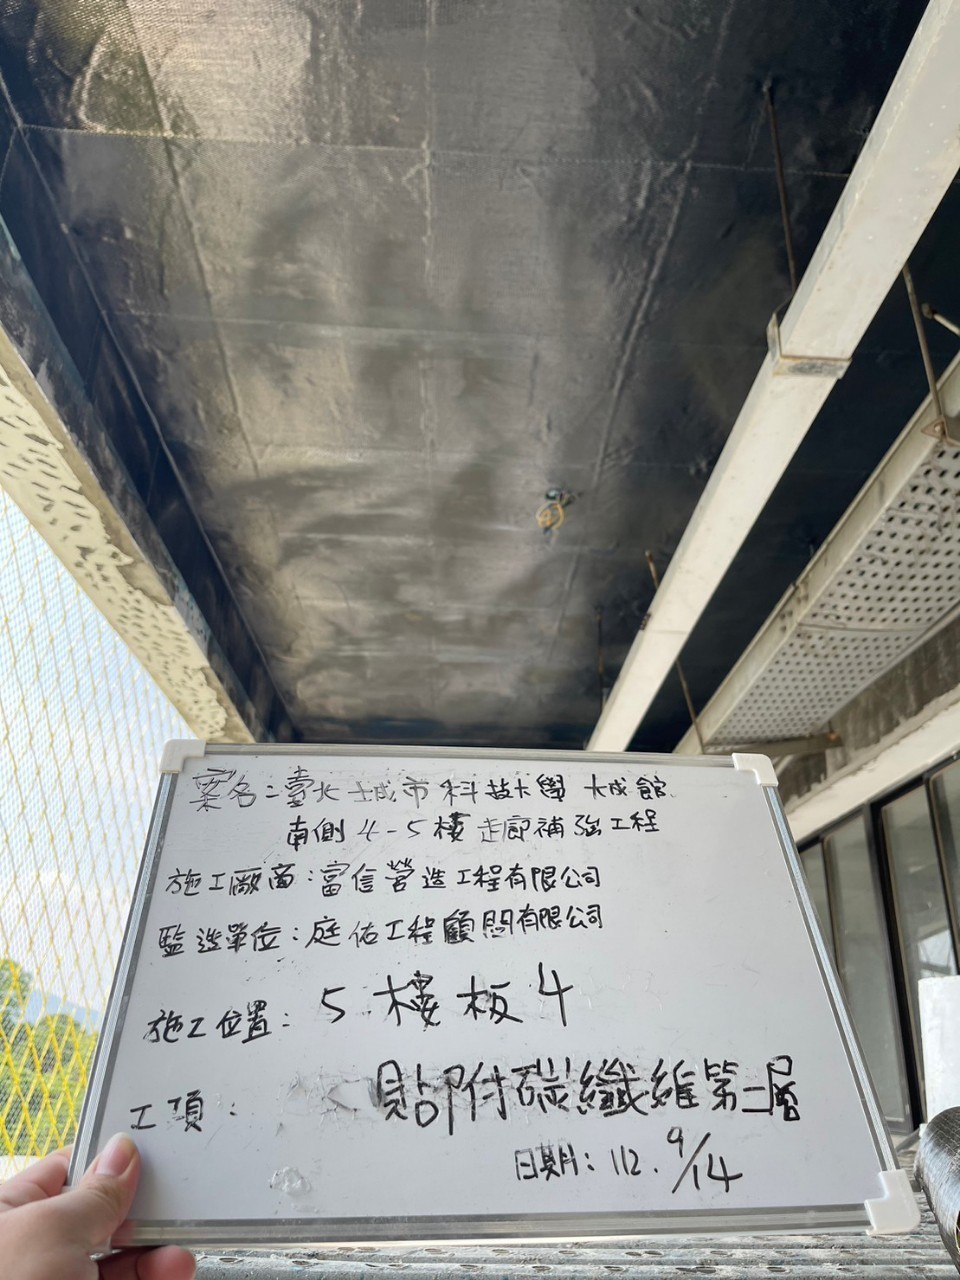 案名：臺北城市科技大學 大成館
南側 4-5樓 走廊補強工程
施工廠商：富信營造工程有限公司
監造單位：庭佑工程顧問有限公司
施工位置：5樓板4
工項：貼附碳纖維第二層
日期：112.9/14